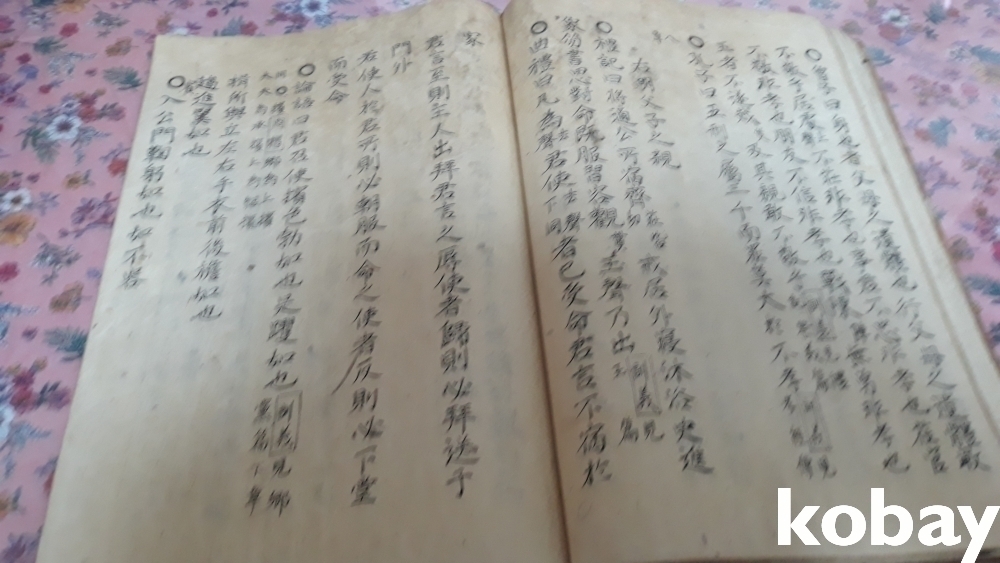 ○曾子曰身也者父母之遺體也行父母之遺體敢
不敬乎居處不莊非孝也事君不忠非孝也莅官
不敬非孝也朋友不信非孝也戰陳無勇非孝也
五者不遂烖及其親敢不敬乎
○孔子曰五刑之屬三千而罪莫大於不孝
章
右明父子之親
○禮記曰將適公所宿齊戒居外寢沐浴史進
象笏書思對命旣服習容觀玉聲乃出
○曲禮曰凡為君使者已受命君言不宿於
家
君言至則主人出拜君言之辱使者歸則必拜送于
門外
若使人於君所則必朝服而命之使者反則必下堂
而受命
○論語曰君召使擯色勃如也足躩如也 刪義見鄉黨篇下章
揖所與立左右手衣前後襜如也
趨進翼如也
○入公門鞠躬如也如不容
kobay